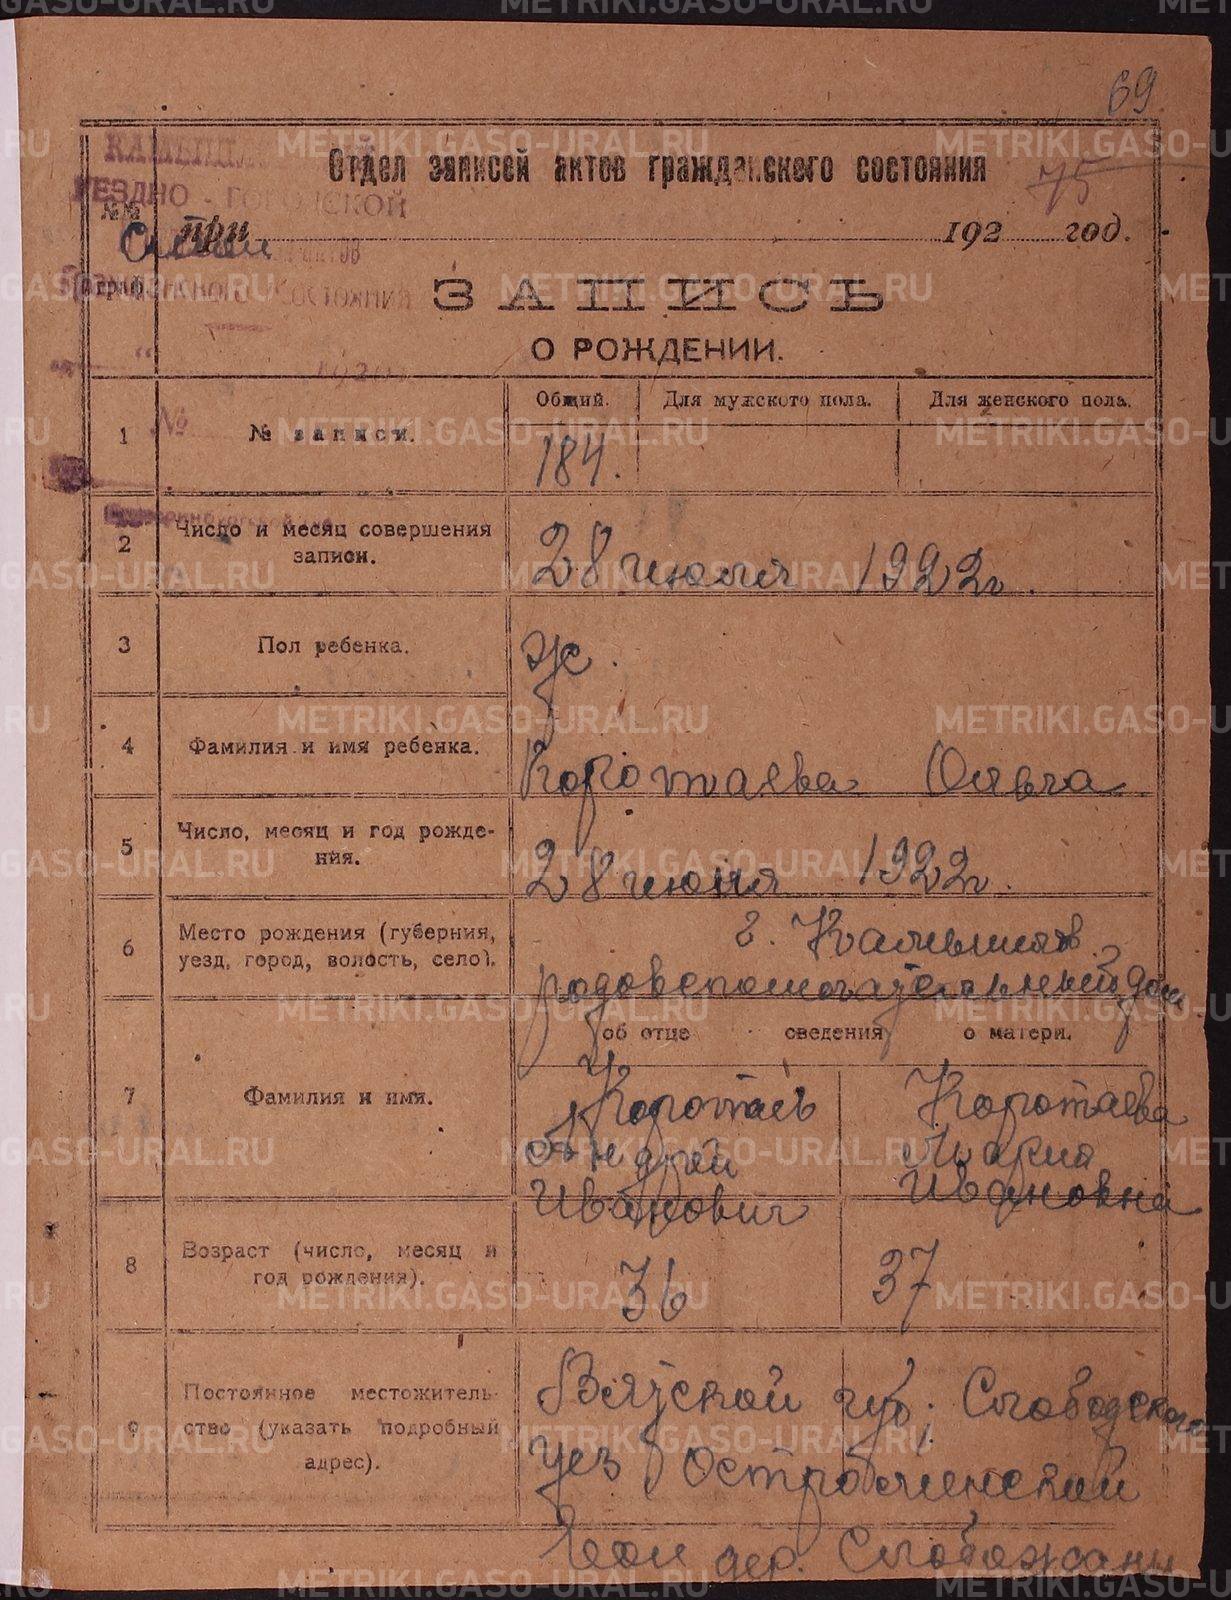 69
75
Отдел записей актов гражданского состояния
УЕЗДНО-ГОРОДСКОЙ
№№
граф.
при 192 год.
ЗАПИСЬ
О РОЖДЕНИИ.
1
№ записи.
Общий. Для мужского пола. Для женского пола.
184.
2
Число и месяц совершения
записи.
28 июля 1922г.
3
Пол ребенка.
ж.
4
Фамилия и имя ребенка.
Коротаева Ольга
5
Число, месяц и год рожде-
ния.
28 июня 1922г.
6
Место рождения (губерния,
уезд, город, волость, село).
г. Камышлов
родовспомогательный дом
7
Фамилия и имя.
об отце сведения о матери.
Коротаев
Андрей
Иванович
Коротаева
Мария
Ивановна
8
Возраст (число, месяц и
год рождения).
36
37
9
Постоянное местожитель-
ство (указать подробный
адрес).
Вятской губ. Слободского
уез
дер. Слобожаны
METRIKI.GASO-URAL.RU